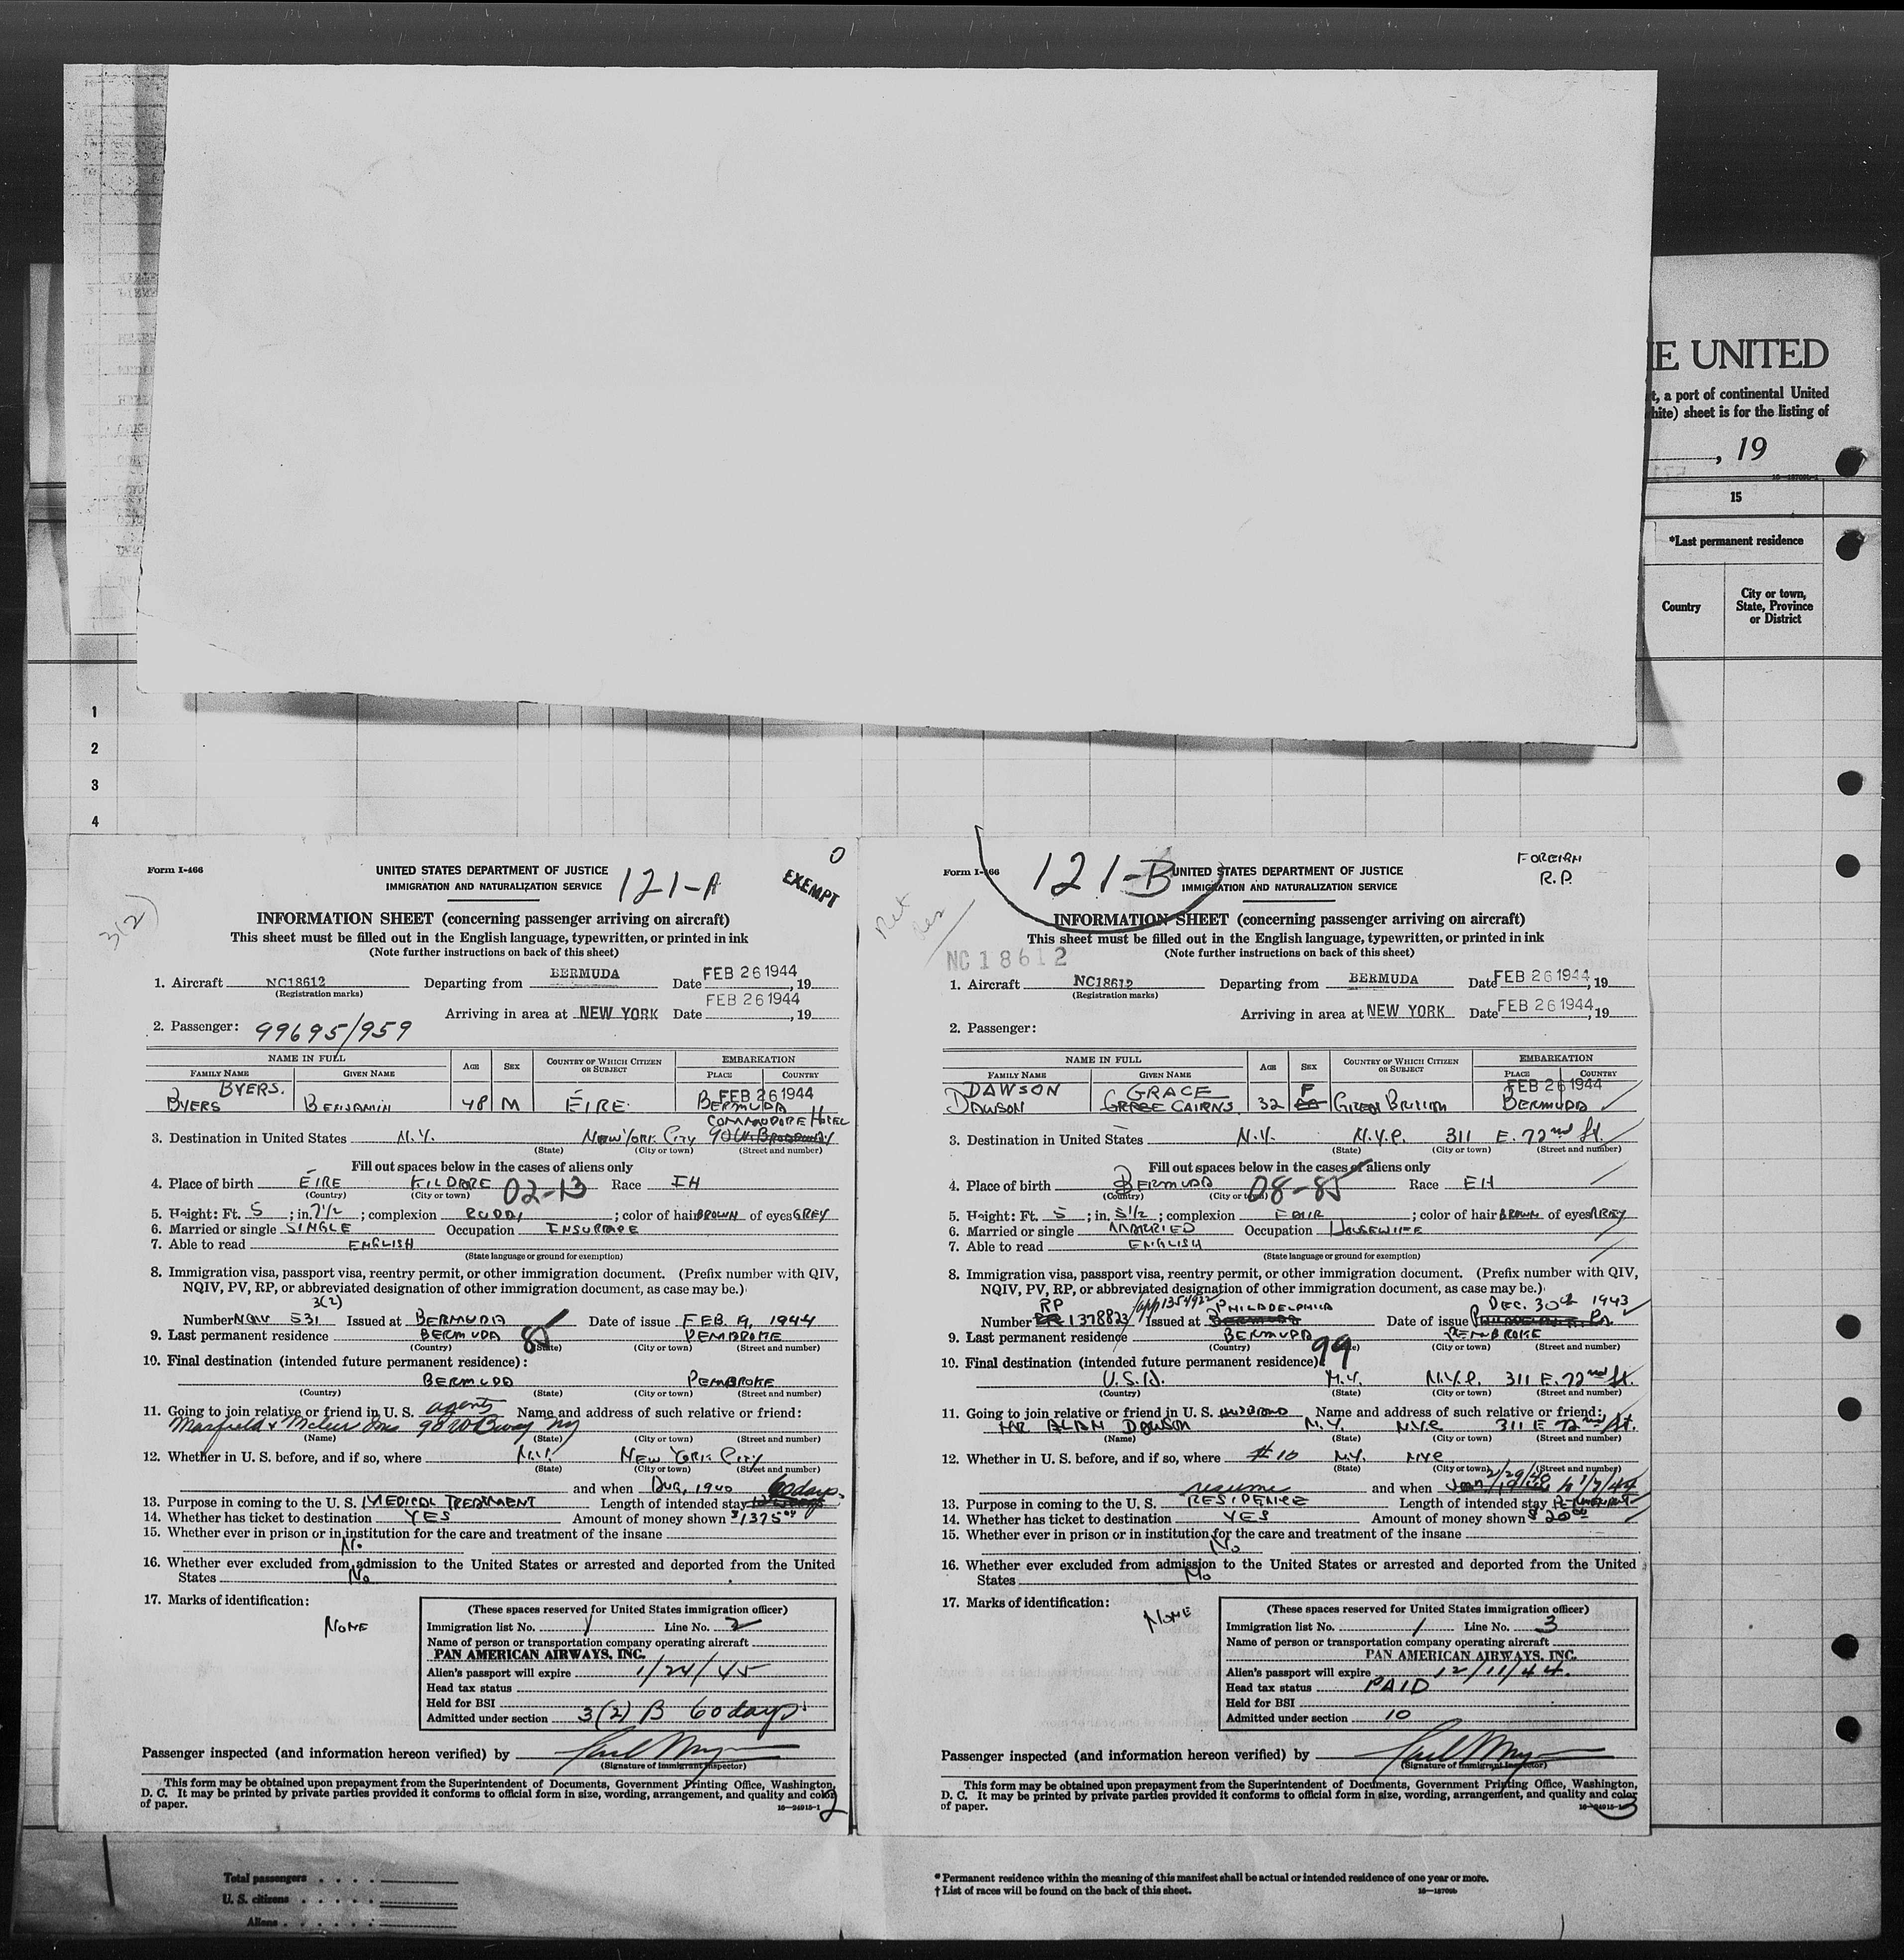 E UNITED
t, a port of continental United
hite) sheet is for the listing of
, 19
15
*Last permanent residence
Country
City or town,
State, Province
or District
1
2
3
4
Form I-466
UNITED STATES DEPARTMENT OF JUSTICE
IMMIGRATION AND NATURALIZATION SERVICE
121-A
0
EXEMPT
3(2)
INFORMATION SHEET (concerning passenger arriving on aircraft)
This sheet must be filled out in the English language, typewritten, or printed in ink
(Note further instructions on back of this sheet)
1. Aircraft NC18612 Departing from BERMUDA Date FEB 26 1944, 19
(Registration marks)
Arriving in area at NEW YORK Date FEB 26 1944, 19
2. Passenger: 99695/959
NAME IN FULL AGE SEX COUNTRY OF WHICH CITIZEN OR SUBJECT EMBARKATION
FAMILY NAME GIVEN NAME PLACE COUNTRY
BYERS. FEB 26 1944
BYERS BENJAMIN 48 M ÉIRE BERMUDA
COMMODORE HOTEL
3. Destination in United States N.Y. NEW YORK CITY
(State) (City or town) (Street and number)
Fill out spaces below in the cases of aliens only
4. Place of birth ÉIRE KILDARE 02-13 Race IH
(Country) (City or town)
5. Height: Ft. 5; in. 7 1/2; complexion RUDDY; color of hair BROWN of eyes GREY
6. Married or single SINGLE Occupation INSURANCE
7. Able to read ENGLISH
(State language or ground for exemption)
8. Immigration visa, passport visa, reentry permit, or other immigration document. (Prefix number with QIV,
NQIV, PV, RP, or abbreviated designation of other immigration document, as case may be.)
3(2)
Number NQIV 531 Issued at BERMUDA Date of issue FEB. 19, 1944
9. Last permanent residence BERMUDA 85 PEMBROKE
(Country) (State) (City or town) (Street and number)
10. Final destination (intended future permanent residence):
BERMUDA PEMBROKE
(Country) (State) (City or town) (Street and number)
11. Going to join relative or friend in U.S. agents Name and address of such relative or friend:
90 W Bway NY
(Name) (State) (City or town) (Street and number)
12. Whether in U. S. before, and if so, where N.Y. NEW YORK CITY
(State) (City or town) (Street and number)
and when AUG, 1940 60 days.
13. Purpose in coming to the U. S. MEDICAL TREATMENT Length of intended stay
14. Whether has ticket to destination YES Amount of money shown $1375.00
15. Whether ever in prison or in institution for the care and treatment of the insane
No
16. Whether ever excluded from admission to the United States or arrested and deported from the United
States No
17. Marks of identification:
NONE
(These spaces reserved for United States immigration officer)
Immigration list No. 1 Line No. 2
Name of person or transportation company operating aircraft
PAN AMERICAN AIRWAYS, INC.
Alien's passport will expire 1/24/45
Head tax status
Held for BSI
Admitted under section 3(2) B 60 days
Passenger inspected (and information hereon verified) by
(Signature of Immigrant Inspector)
This form may be obtained upon prepayment from the Superintendent of Documents, Government Printing Office, Washington,
D. C. It may be printed by private parties provided it conforms to official form in size, wording, arrangement, and quality and color
of paper.
16—24915-1
2
Form I-466
121-B
UNITED STATES DEPARTMENT OF JUSTICE
IMMIGRATION AND NATURALIZATION SERVICE
FOREIGN
R.P.
INFORMATION SHEET (concerning passenger arriving on aircraft)
This sheet must be filled out in the English language, typewritten, or printed in ink
(Note further instructions on back of this sheet)
NC18612
1. Aircraft NC18612 Departing from BERMUDA Date FEB 26 1944, 19
(Registration marks)
Arriving in area at NEW YORK Date FEB 26 1944, 19
2. Passenger:
NAME IN FULL AGE SEX COUNTRY OF WHICH CITIZEN OR SUBJECT EMBARKATION
FAMILY NAME GIVEN NAME PLACE COUNTRY
DAWSON GRACE F FEB 26 1944
DAWSON GRACE CAIRNS 32 GREAT BRITAIN BERMUDA
3. Destination in United States N.Y. N.Y.C. 311 E. 72nd St.
(State) (City or town) (Street and number)
Fill out spaces below in the cases of aliens only
4. Place of birth BERMUDA 08-85 Race EH
(Country) (City or town)
5. Height: Ft. 5; in. 5 1/2; complexion FAIR; color of hair BROWN of eyes GREY
6. Married or single MARRIED Occupation HOUSEWIFE
7. Able to read ENGLISH
(State language or ground for exemption)
8. Immigration visa, passport visa, reentry permit, or other immigration document. (Prefix number with QIV,
NQIV, PV, RP, or abbreviated designation of other immigration document, as case may be.)
RP app 1354922 PHILADELPHIA DEC. 30th 1943
Number 1378823 Issued at BERMUDA Date of issue
9. Last permanent residence BERMUDA 99 PEMBROKE
(Country) (City or town) (Street and number)
10. Final destination (intended future permanent residence):
U.S.A. N.Y. N.Y.C. 311 E. 72nd St.
(Country) (State) (City or town) (Street and number)
11. Going to join relative or friend in U.S. HUSBAND Name and address of such relative or friend:
MR ALAN DAWSON N.Y. N.Y.C 311 E 72nd St.
(Name) (State) (City or town) (Street and number)
12. Whether in U. S. before, and if so, where #10 N.Y. NYC
(State) (City or town) (Street and number)
resume and when
13. Purpose in coming to the U. S. RESIDENCE Length of intended stay PERMANENT
14. Whether has ticket to destination YES Amount of money shown $20.00
15. Whether ever in prison or in institution for the care and treatment of the insane
No
16. Whether ever excluded from admission to the United States or arrested and deported from the United
States No
17. Marks of identification:
NONE
(These spaces reserved for United States immigration officer)
Immigration list No. 1 Line No. 3
Name of person or transportation company operating aircraft
PAN AMERICAN AIRWAYS, INC.
Alien's passport will expire 12/11/44.
Head tax status PAID
Held for BSI
Admitted under section 10
Passenger inspected (and information hereon verified) by
(Signature of Immigrant Inspector)
This form may be obtained upon prepayment from the Superintendent of Documents, Government Printing Office, Washington,
D. C. It may be printed by private parties provided it conforms to official form in size, wording, arrangement, and quality and color
of paper.
16—24915-1
3
Total passengers
U. S. citizens
Aliens
* Permanent residence within the meaning of this manifest shall be actual or intended residence of one year or more.
† List of races will be found on the back of this sheet.